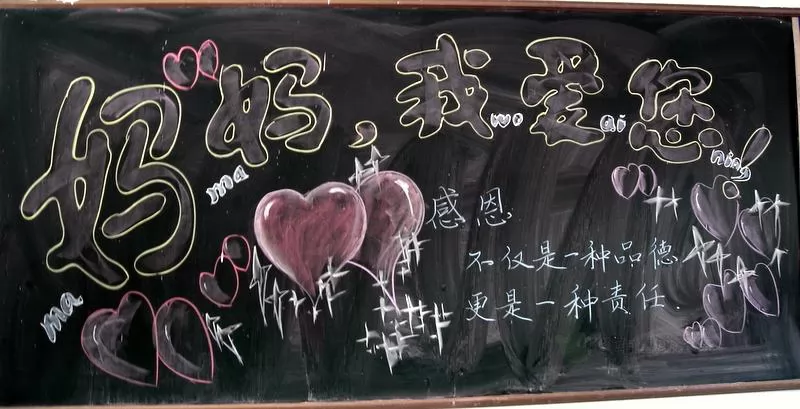 妈妈,我爱您!
ma ma wo ai ning
感恩
不仅是一种品德
更是一种责任.